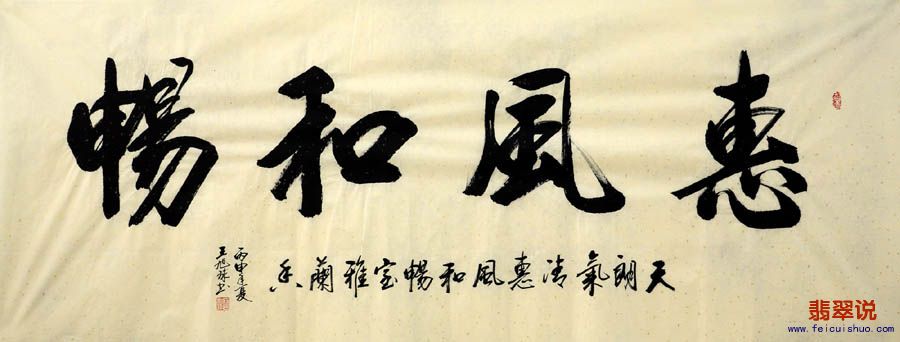 惠風和暢
天朗氣清惠風和暢室雅蘭香
丙申年夏
王旭林书
翡翠说
www.feicuishuo.com